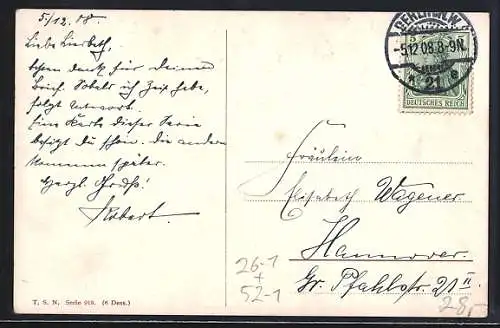 5/12.08.
Liebe Liesbeth,
besten Dank für deinen
Brief. Sobald ich Zeit habe,
folgt Antwort.
Eine Karte dieser Serie
besitzt du schon. Die andern
kommen später.
Herzl. Gruß!
Robert.
T. S. N. Serie 918. (6 Dess.)
BERLIN N.W.
-5.12.08.8-9N.
* 21 e
DEUTSCHES REICH
Fräulein
Elisabeth Wagener
Hannover.
Gr. Pfahlstr. 21 II
26-1
+
52-1
28,-